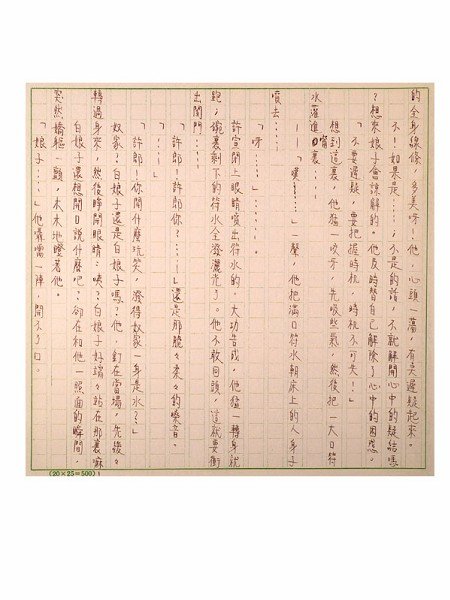 的全身線條，多美呀！他，心頭一蕩，有矣遲疑起來。
不！如果是……；不是的話，不就解開心中的疑結嗎
？想來娘子會諒解的。他反時替自己解除了心中的困惑。
「不要遲疑，要把握時机，時机不可失！」
想到這裏，他猛一咬牙，先吸些氣，然後把一大口符
水灌進嘴裏。
「噗……！」一聲，他把滿口符水朝床上的人身子
噴去……
「呀……！」……。
許宣閉上眼睛噴出符水的，大功告成，他猛一轉身就
跑；碗裏剩下的符水全潑灑光了。他不敢回頭，這就要衝
出閨門……
「許郎！許郎你？……！」還是那脆々柔々的嗓音。
「……！」
「許郎！你開什麼玩笑，潑得奴家一身是水？」
奴家？白娘子還是白娘子嗎？他，釘在當場，先後々
轉過身來，然後睜開眼睛：咦？白娘子好端々站在那裏嘛！
白娘子還想開口說什麼吧？卻在和他一照面的瞬間，
突然嬌軀一顫，木木地瞪著他。
「娘子……！」他囁嚅一陣，開不了口。
(20×25=500)